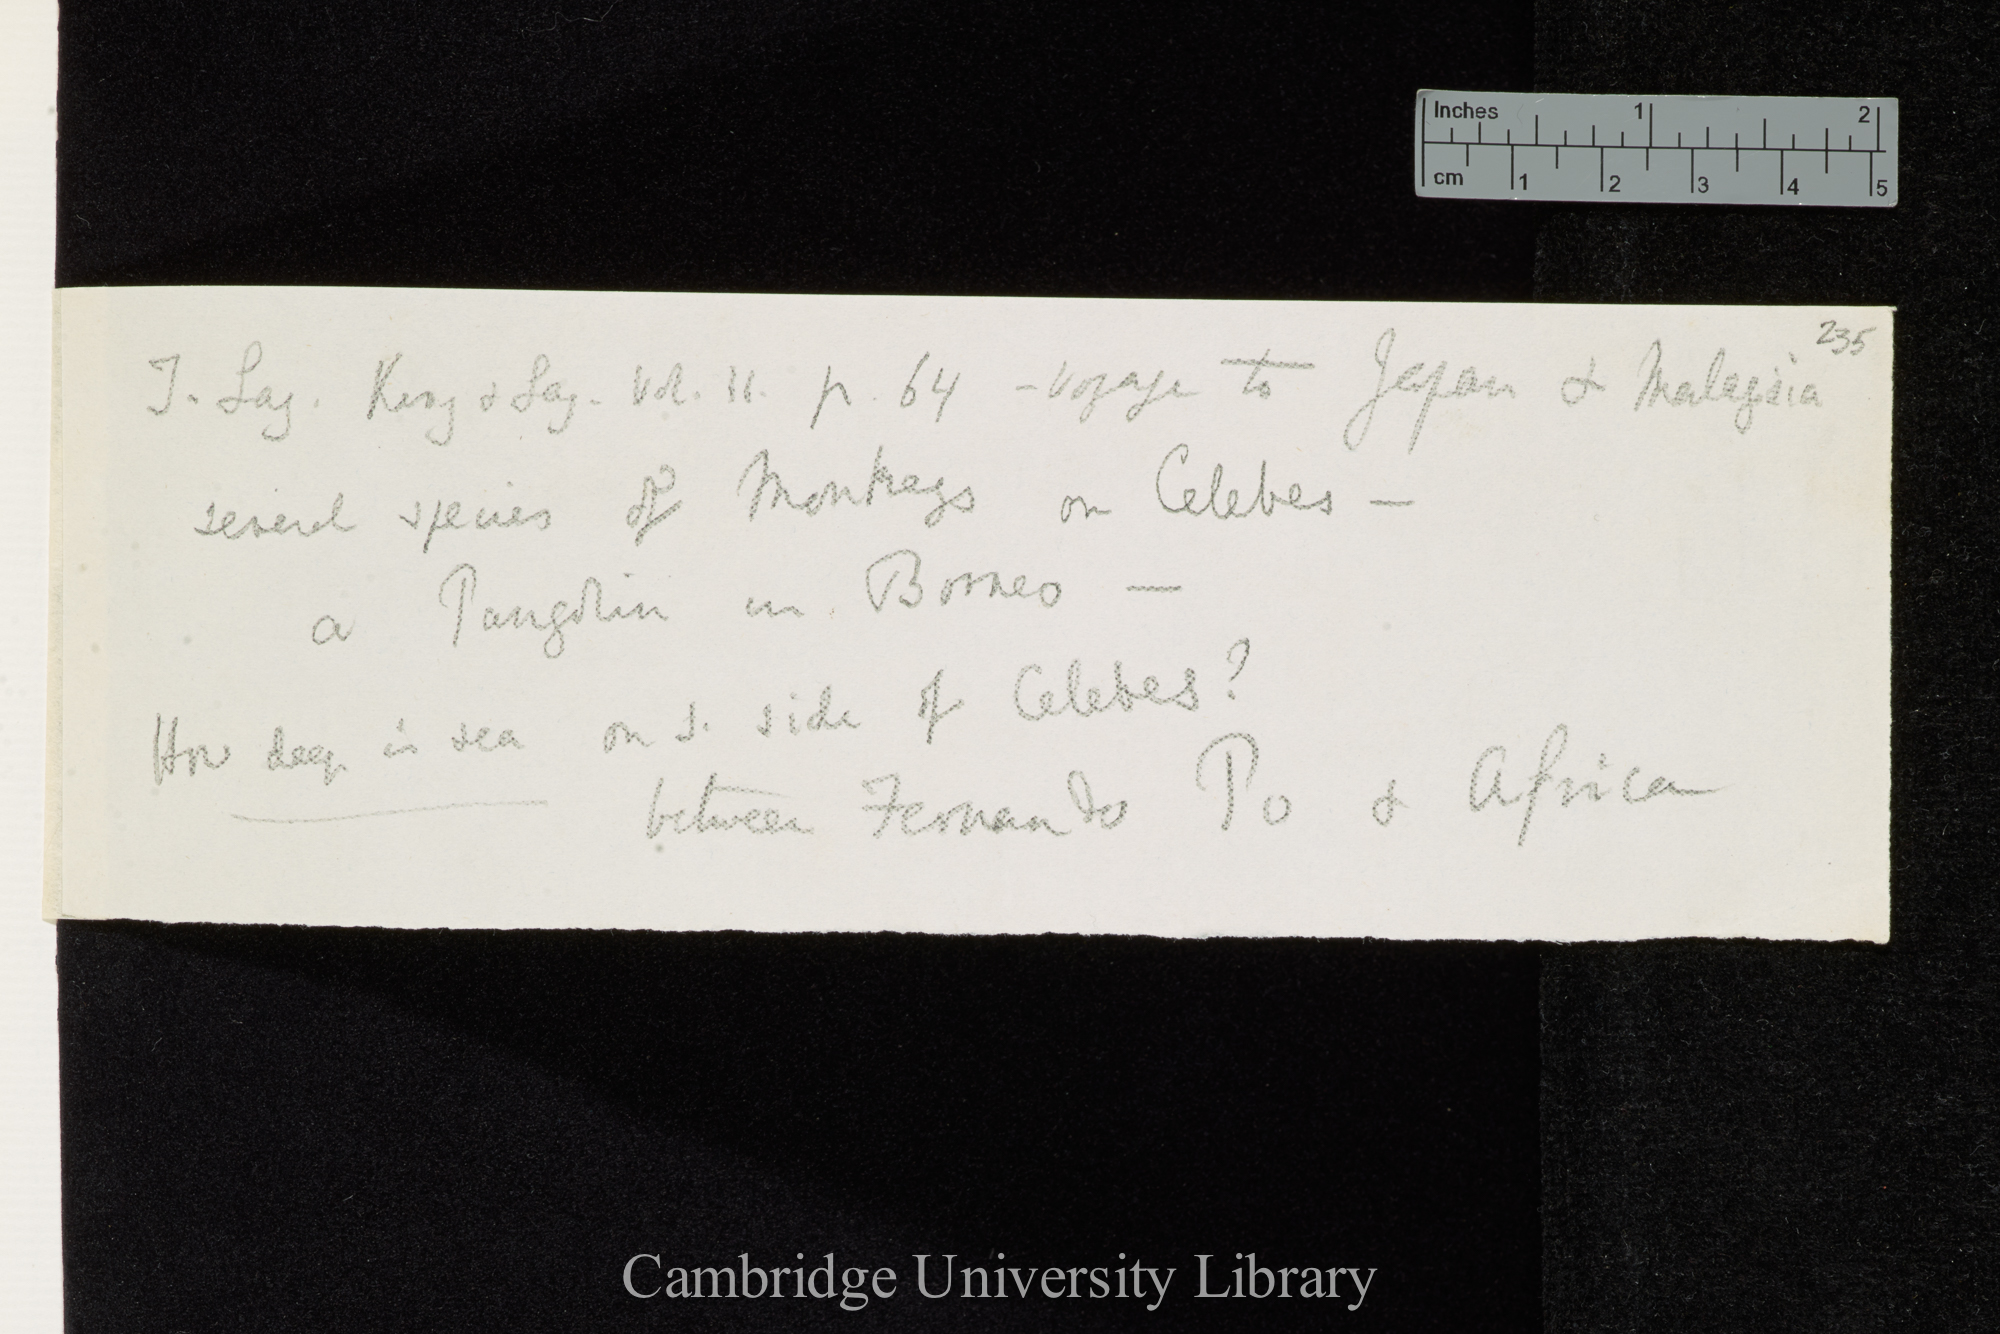 Inches 1 2
cm 1 2 3 4 5
235
J. Lay. King & Lay. Vol. II. p. 64 – Voyage to Japan & Malaysia
several species of Monkeys on Celebes —
a Pangolin in Borneo —
How deep is sea on S. side of Celebes?
between Fernando Po & Africa
Cambridge University Library